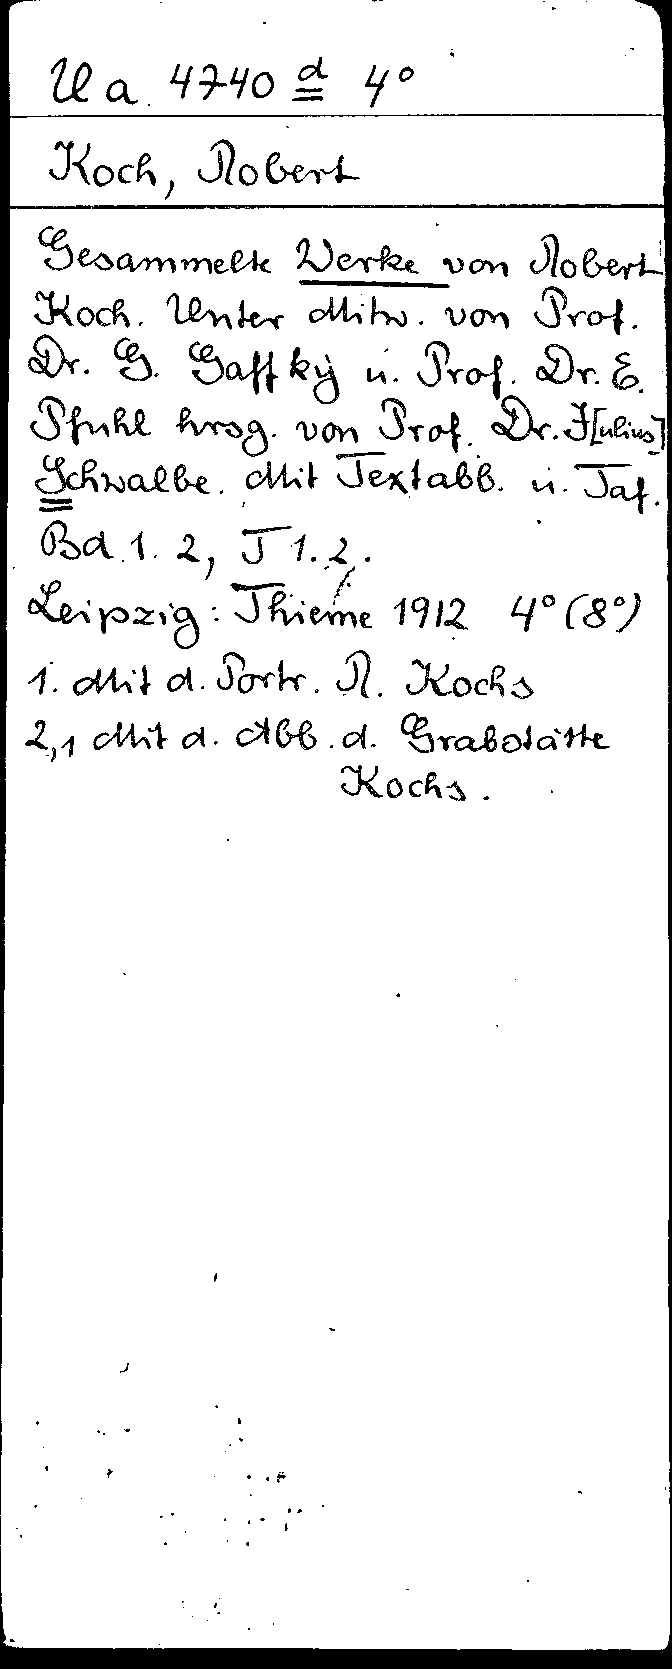 Ua 4740 d 4°
Koch, Robert
Gesammelte Werke von Robert
Koch. Unter Mitw. von Prof.
Dr. G. Gaffky u. Prof. Dr. E.
Pfuhl hrsg. von Prof. Dr. J[ulius]
Schwalbe. Mit Textabb. u. Taf.
Bd 1. 2, T 1. 2.
Leipzig: Thieme 1912 4° (8°)
1. Mit d. Portr. R. Kochs
2,1 Mit d. Abb. d. Grabstätte
Kochs.